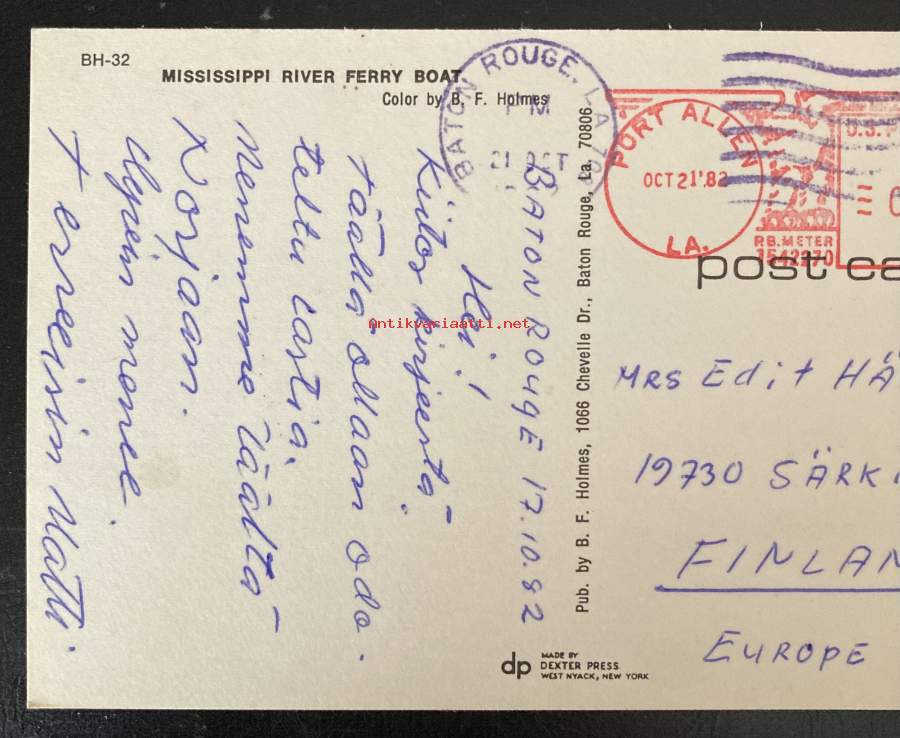 BH-32
MISSISSIPPI RIVER FERRY BOAT
Color by B. F. Holmes
BATON ROUGE, LA 708
PM
21 OCT
PORT ALLEN
OCT 21 '82
LA.
U.S.P
P.B. METER
1542270
post ca
BATON ROUGE 17.10.82
Hei!
Kiitos kirjeestä.
Täällä ollaan odo-
tettu lastia.
Menemme täältä
Norjaan.
Terveisin Matti.
Pub. by B. F. Holmes, 1066 Chevelle Dr., Baton Rouge, La. 70806
MRS Edit HÄ
19730 SÄRK
FINLAN
EUROPE
dp MADE BY
DEXTER PRESS
WEST NYACK, NEW YORK
Antikvariaatti.net